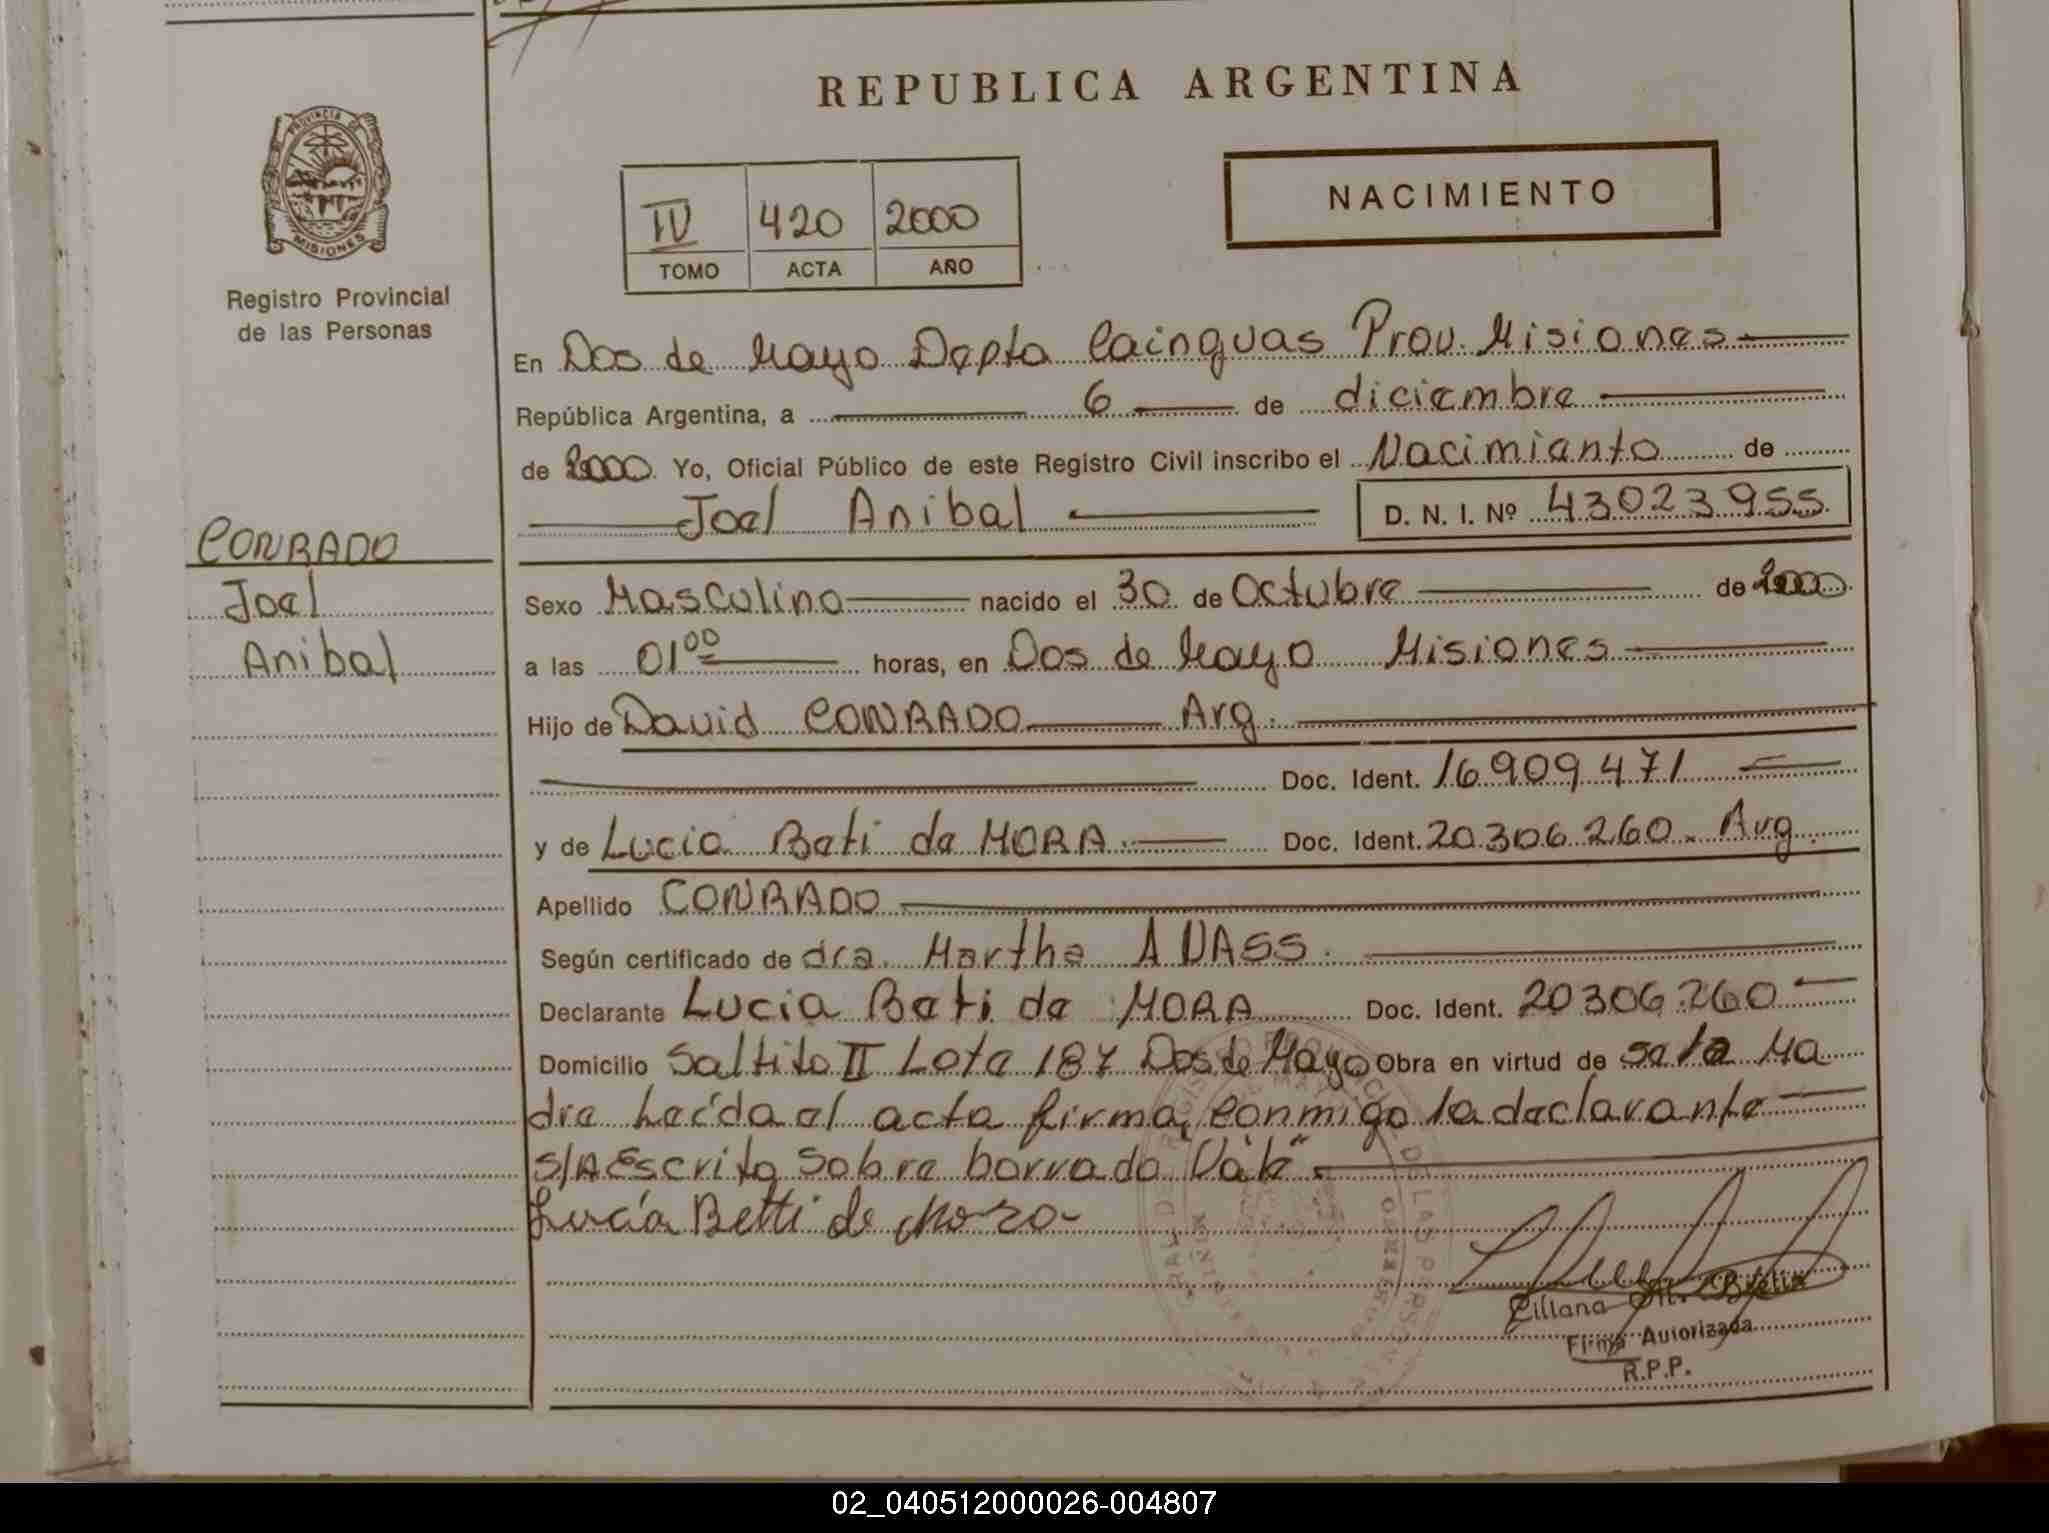 REPUBLICA ARGENTINA
PROVINCIA DE
MISIONES
Registro Provincial
de las Personas
NACIMIENTO
IV 420 2000
TOMO ACTA AÑO
En Dos de Mayo Depto Cainguas Prov. Misiones
República Argentina, a 6 de diciembre
de 2000 Yo, Oficial Público de este Registro Civil inscribo el Nacimianto de
Joel Anibal D. N. I. Nº 43023955
CONRADO
Joel
Anibal
Sexo Masculino nacido el 30 de Octubre de 2000
a las 01 00 horas, en Dos de Mayo Misiones
Hijo de David CONRADO Arg.
Doc. Ident. 16909471
y de Lucia Bati de MORA. Doc. Ident. 20.306.260. Arg.
Apellido CONRADO
Según certificado de dra. Martha A VASS.
Declarante Lucia Bati de MORA Doc. Ident. 20306260
Domicilio Saltito II Lote 187 Dos de Mayo Obra en virtud de ser la Ma
dre Leída el acta firma conmigo la declarante
S/A Escrito sobre borrado Vale".
Lucía Betti de Mora
Firma Autorizada
R.P.P.
02_040512000026-004807